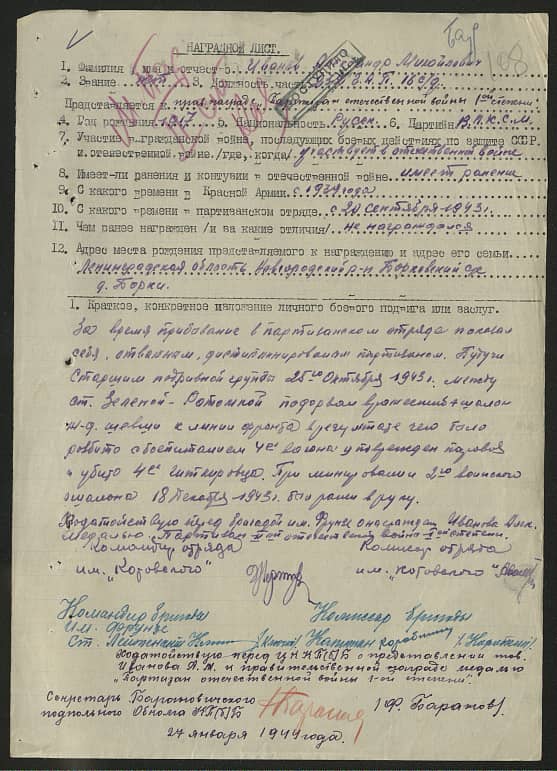 НАГРАДНОЙ ЛИСТ.
1. Фамилия имя и отчест-о. Иванов Михайлович
2. Звание 3. Должность, часть 16 с/д.
Представляется к правнаграде Партизан отечественной войны 1ой степени.
4. Год рождения 1917 5. Национальность Русск. 6. Партийн В.Л.К.С.М.
7. Участие в гражданской войне, последующих боевых действиях по защите СССР.
и отечественной войне /где, когда/ участвует в отечествен войне
8. Имеет-ли ранения и контузии в отечественной войне. имеет ранение
9. С какого времени в Красной Армии. с 1939 года
10. С какого времени в партизанском отряде. с 20 сентября 1943 г.
11. Чем ранее награжден /и за какие отличия/ не награждался
12. Адрес места рождения представляемого к награждению и адрес его семьи.
Ленинградская область Новгородский р-н Борковский с/с
д. Борки.
1. Краткое, конкретное изложение личного боевого подвига или заслуг.
За время прибование в партизанском отряде показал
себя, отважным, дистиблинированом партизаном. Будучи
старшим подривной группы 25го октября 1943 г. между
ст. Зеленой - Ратомкой подорвал вражеский эшалон
ж-д. шедший к линии фронта врезултате чего было
розбито с боепитанием 4е вагона и поврежден паровоз
и убито 4е гитлеровца. При минировании 2го воинского
эшалона 18 декабря 1943 г. был ранен в руку.
Ходатойствую перед бригадой им. Фрунзе о награжден Иванова Алек.
медалью Партизан отечественной война степени.
Командир отряда Комисар отряда
им. „Котовского" им. „Котовского"
Командир бригады Комиссар бригады
им. Фрунзе
Ст. Лейтенант Капитан
Ходатайствую перед ЦК КП(б)Б о представлении тов.
Иванова А. М. к правительственной награде медалью
„Партизан отечественной войны 1-ой степени".
Секретарь Барановичского
подпольного Обкома КП(б)Б /Ф. Баранов/
27 января 1944 года.